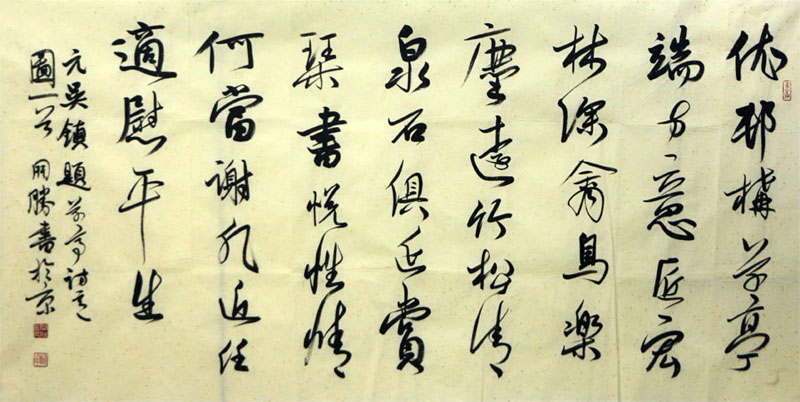 依邨構草亭
端方意匠宏
林深禽鳥樂
塵遠竹松清
泉石俱延賞
琹書悅性情
何當謝凡近任
適慰平生
元吳鎮題草亭詩意
圖一首 用勝書於京